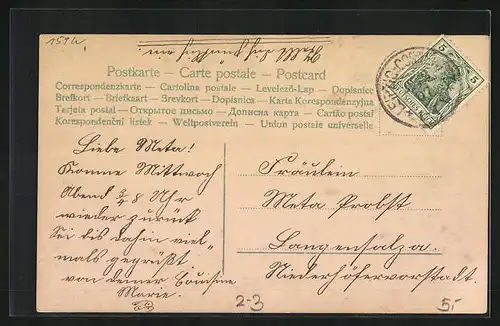 1594
Stelle daß pünktlich ein
Postkarte — Carte postale — Postcard
Correspondenzkarte — Cartolina postale — Levelező-Lap — Dopisnice
Brefkort — Briefkaart — Brevkort — Dopisnica — Karte Korespondenzyjna
Tarjeta postal — Открытое письмо — Дописна карта — Cartão postal
Korespondenční lístek — Weltpostverein — Union postale universelle
5 5
Liebe Meta!
Komme Mittwoch
Abend 3/4 8 Uhr
wieder zurück
Sei bis dahin viel=
mals gegrüßt
von deiner Cousine
Marie.
Fräulein
Meta Probst
Langensalza.
Niederhöfervorstadt.
2-3
5,-